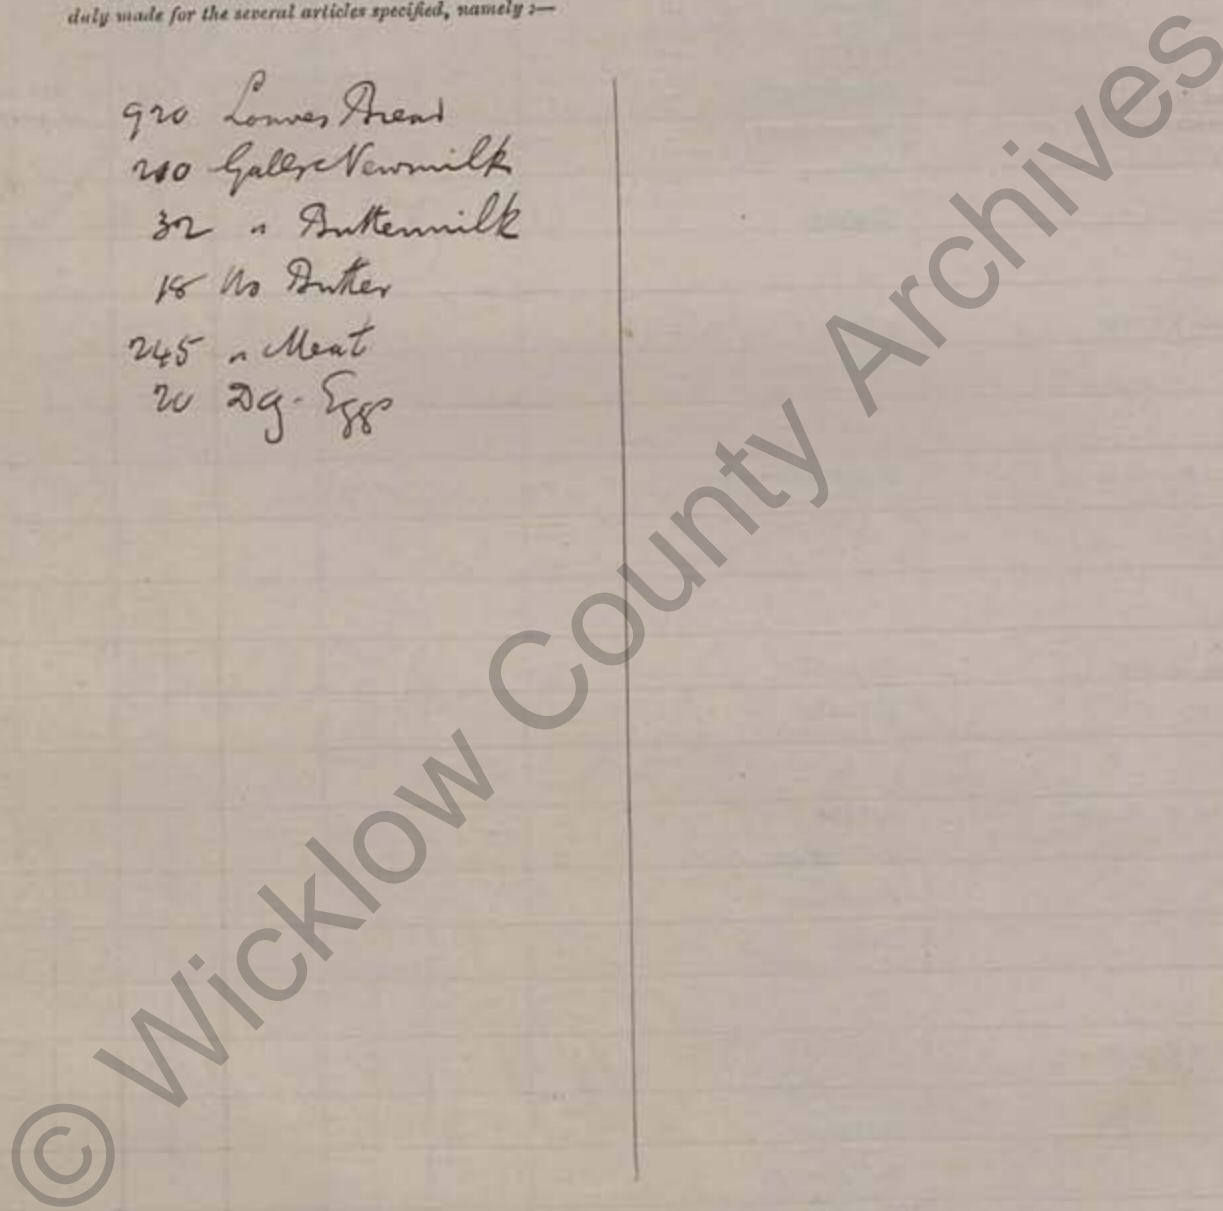 duly made for the several articles specified, namely :—
920 Loaves Bread
Galls Newmilk
32 " Buttermilk
18 lbs Butter
245 " Meat
20 Dz. Eggs
© Wicklow County Archives